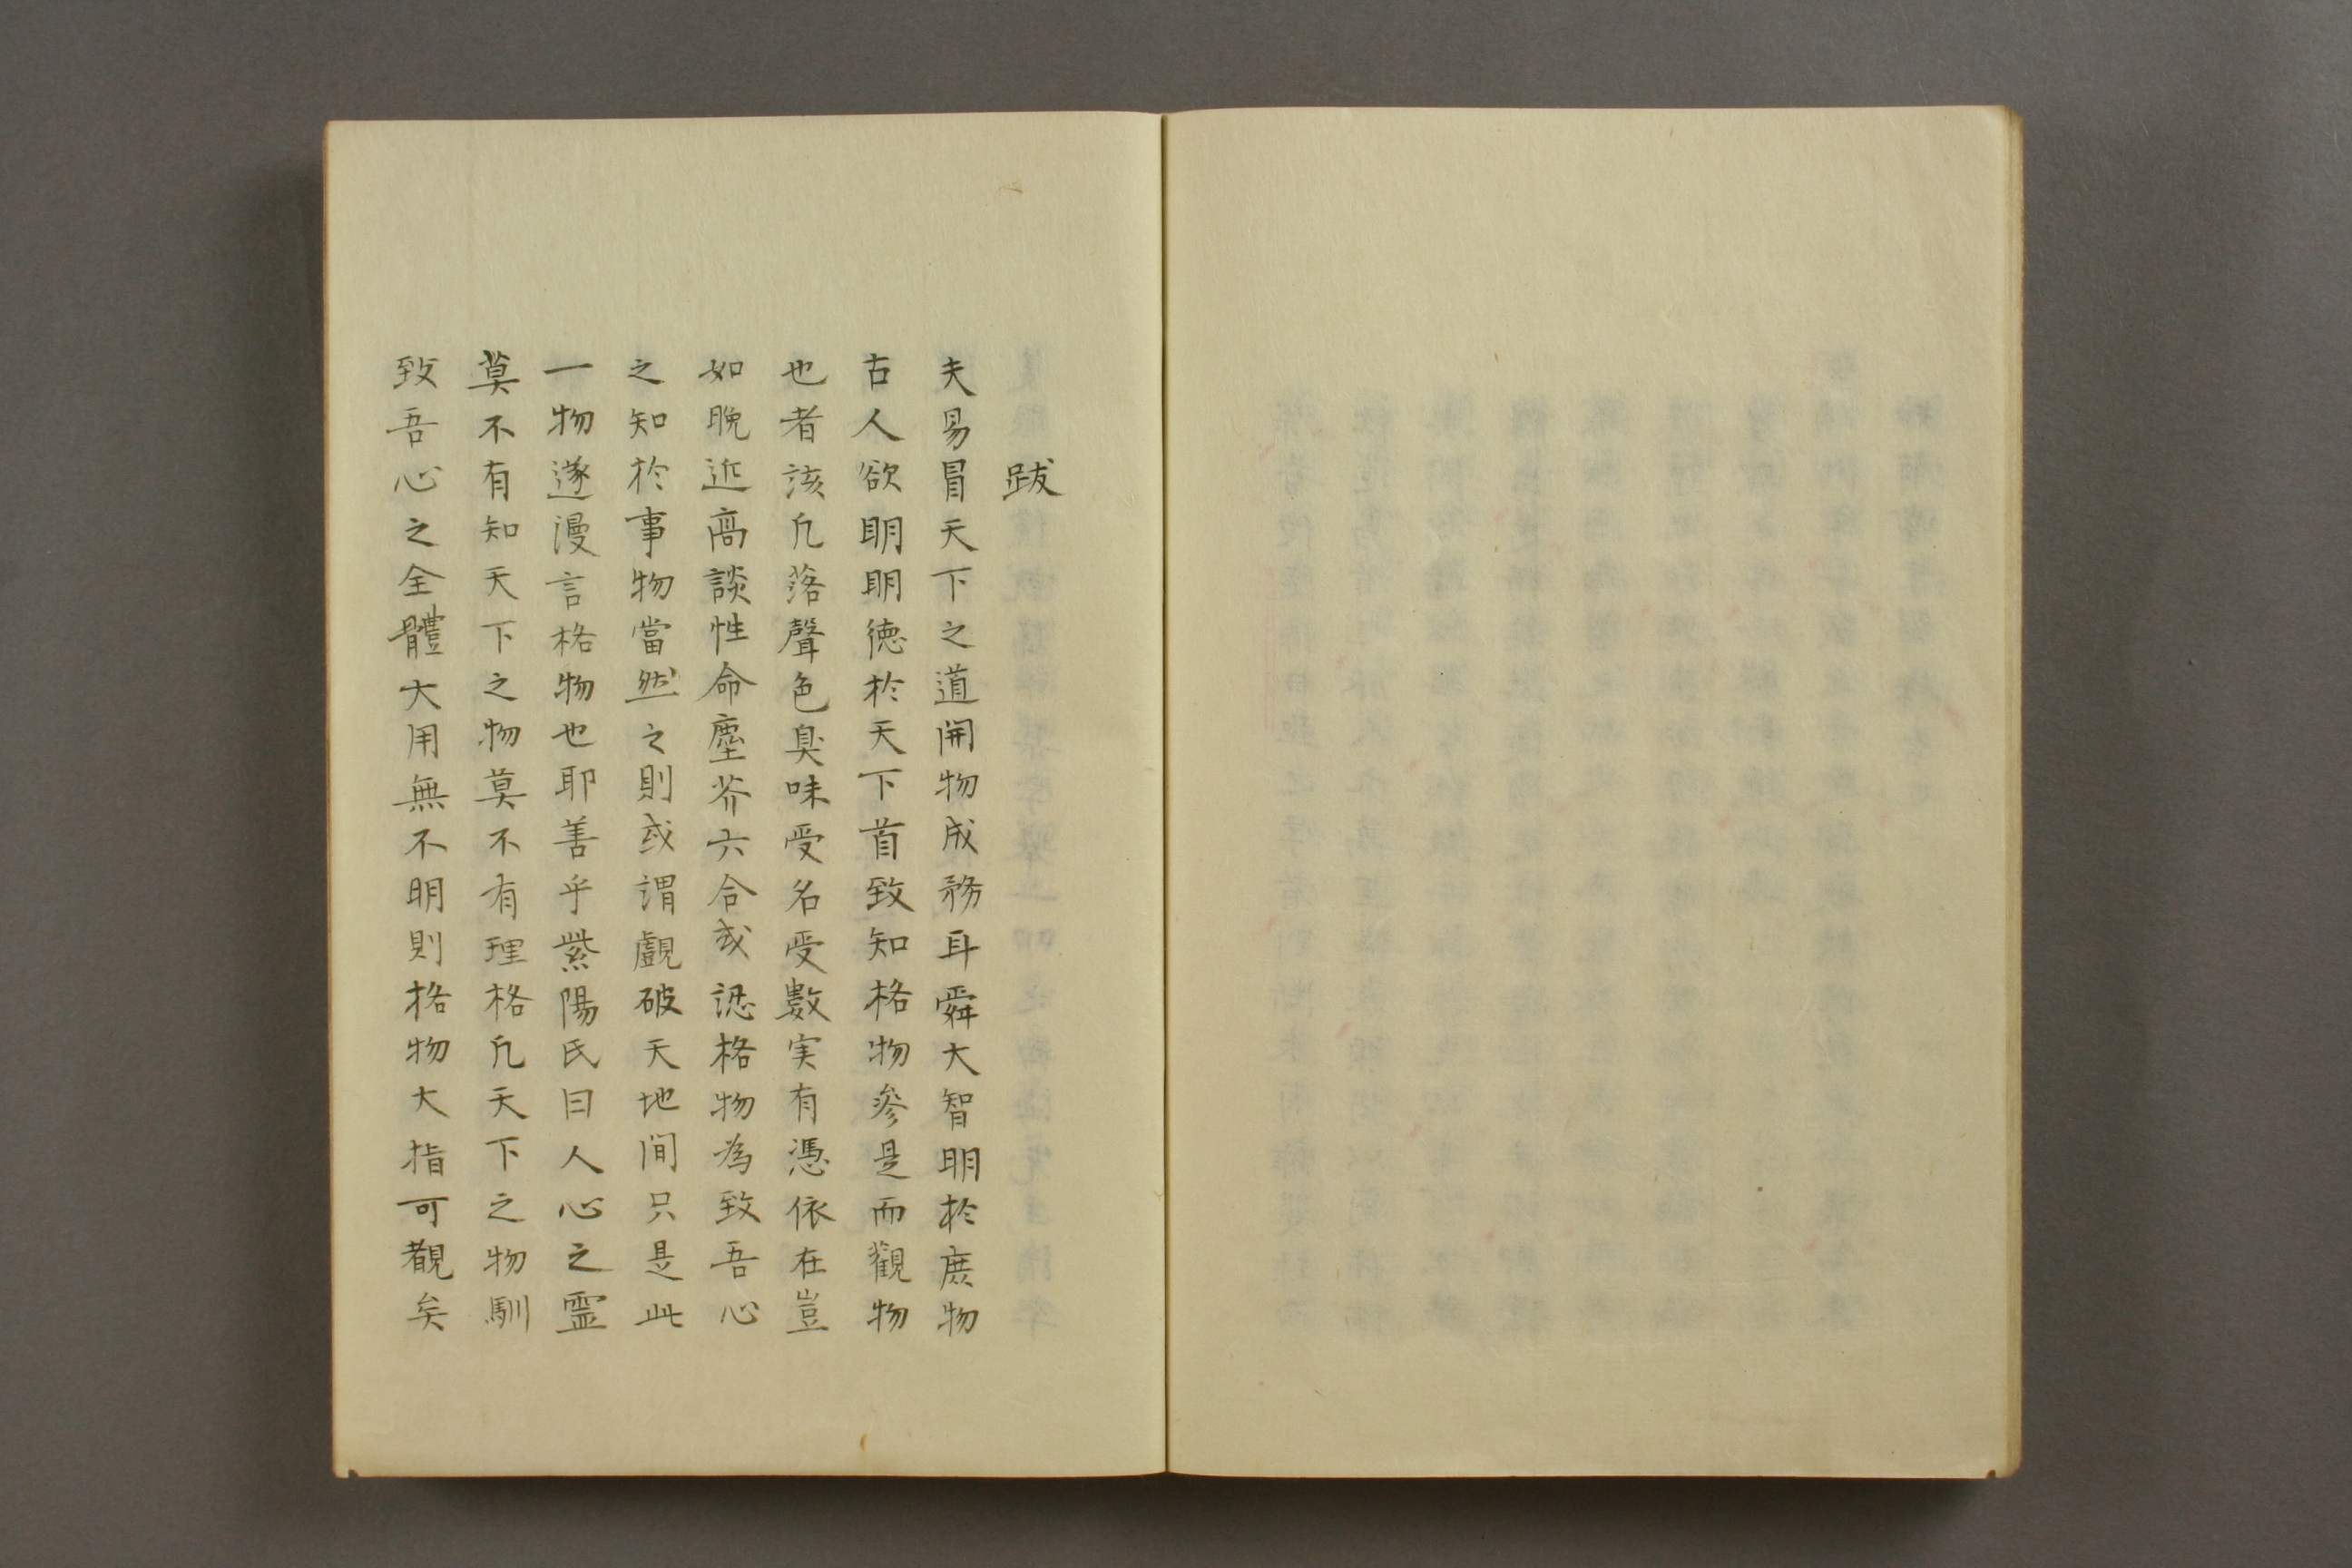 跋
夫易冒天下之道開物成務耳舜大智明於庶物
古人欲明明徳於天下首致知格物參是而觀物
也者該凡落聲色臭味受名受數実有憑依在豈
如晩近高談性命塵芥六合或認格物為致吾心
之知於事物當然之則或謂覰破天地間只是此
一物遂漫言格物也耶善乎紫陽氏曰人心之霊
莫不有知天下之物莫不有理格凡天下之物馴
致吾心之全體大用無不明則格物大指可覩矣